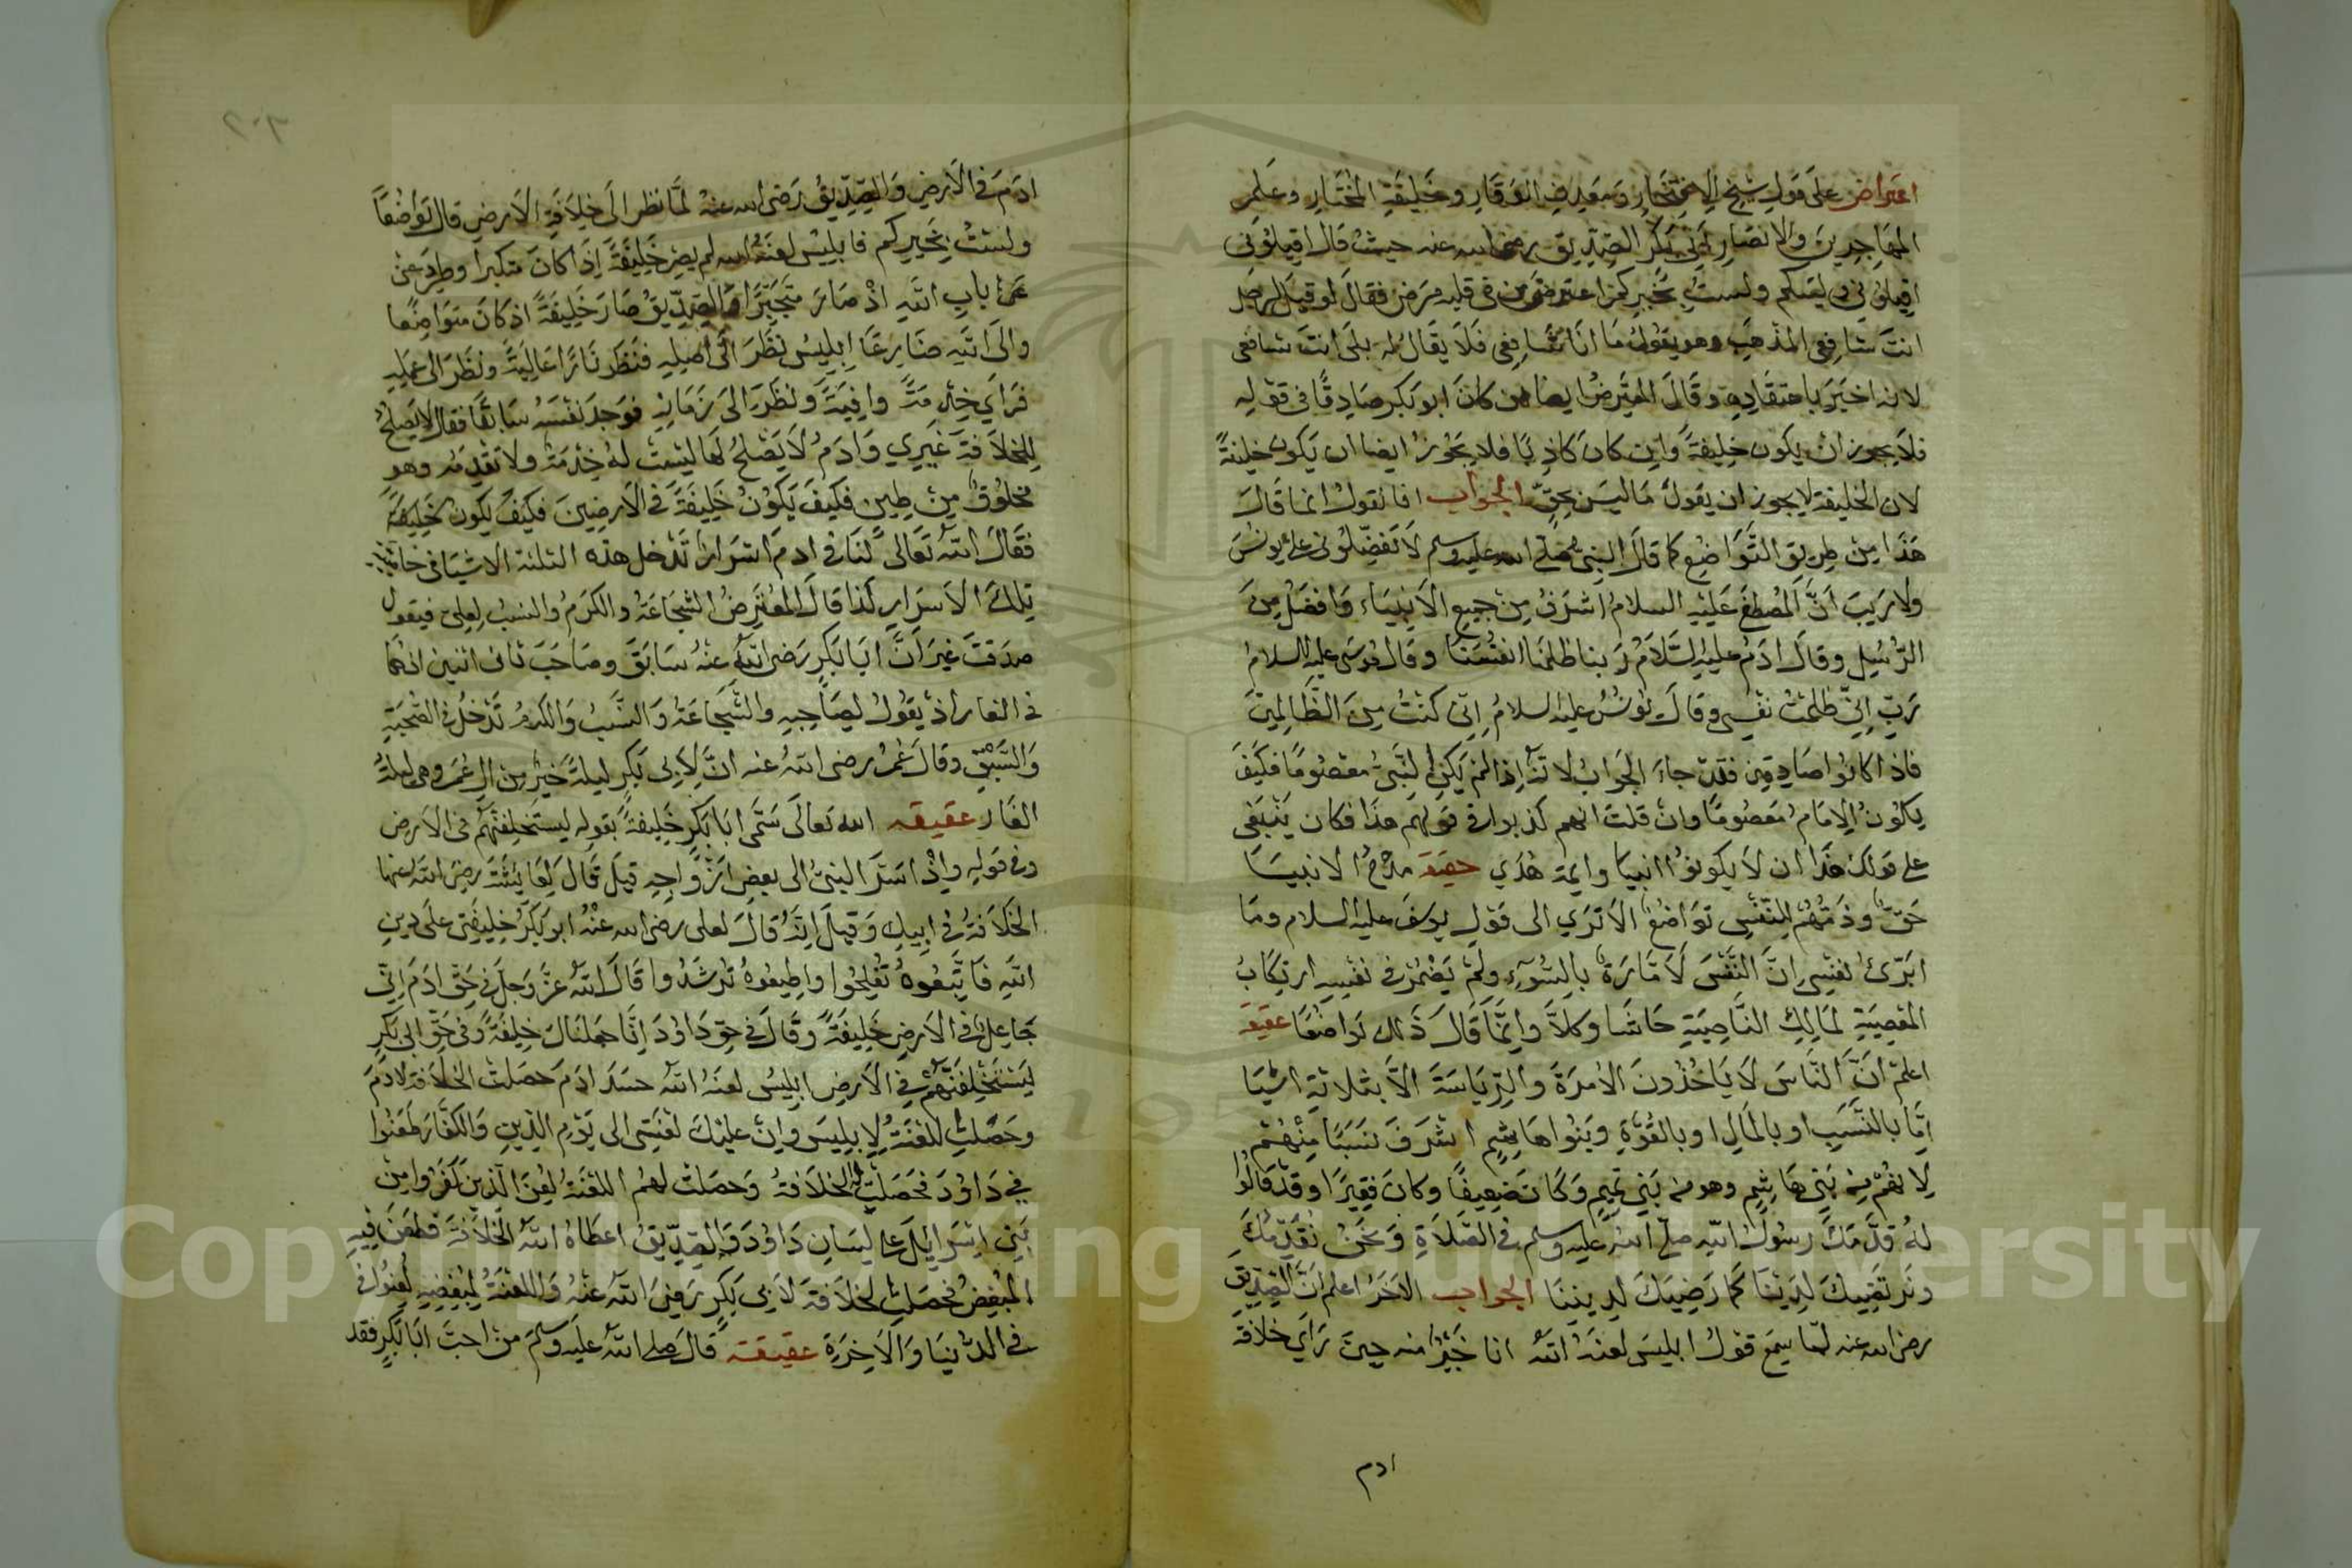 اعتراض على قول شيخ الافتخار ومعدن الوقار وخليفة المختار وعلم
المهاجرين والانصار ابي بكر الصديق رضي الله عنه حيث قال اقيلوني
اقيلوني ولست بخيركم اعترض من في قلبه مرض فقال لو قيل لرجل
انت شافعي المذهب وهو يقول ما انا شافعي فلا يقال له بلى انت شافعي
لانه اخبر باعتقاده وقال المعترض ايضا ان كان ابو بكر صادقا في قوله
فلا يجوز ان يكون خليفة وان كان كاذبا فلا يجوز ايضا ان يكون خليفة
لان الخليفة لا يجوز ان يقول ما ليس بحق الجواب انا نقول انما قال
هذا من طريق التواضع كما قال النبي صلى الله عليه وسلم لا تفضلوني على يونس
ولا ريب ان المصطفى عليه السلام اشرف من جميع الانبياء وافضل من
الرسل وقال ادم عليه السلام ربنا ظلمنا انفسنا وقال موسى عليه السلام
رب اني ظلمت نفسي وقال يونس عليه السلام اني كنت من الظالمين
فاذا كانوا صادقين فقد جاء الجواب لانه اذا لم يكن النبي معصوما فكيف
يكون الامام معصوما وان قلت انهم كذبوا في قولهم هذا فكان ينبغي
على قولك هذا ان لا يكونوا انبيا وايمة هدي حقيقة مدح الانبيا
حق وذمهم للنفس تواضع الا تري الى قول يوسف عليه السلام وما
ابرئ نفسي ان النفس لامارة بالسوء ولم يضمر في نفسه ارتكاب
المعصية لمالك الناصية حاشا وكلا وانما قال ذلك تواضعا عقيقة
اعلم ان الناس لا ياخذون الامرة والرياسة الا بثلاثة اشيا
اما بالنسب او بالمال او بالقوة وبنوا هاشم اشرف نسبا منهم
لانهم من بني هاشم وهو من بني تميم وكان ضعيفا وكان فقيرا وقد قالوا
له قدمك رسول الله صلى الله عليه وسلم في الصلاة ونحن نقدمك
ونرتضيك لديننا كما رضيك لديننا الجواب الاخر اعلم ان الصديق
رضي الله عنه لما سمع قول ابليس لعنه الله انا خير منه حين راي خلافة
ادم
ادم في الارض والصديق رضي الله عنه لما نظر الى خلافة الارض قال تواضعا
ولست بخيركم فابليس لعنه الله لم يصر خليفة اذا كان متكبرا وطرد عن
عن باب الله اذ صار متجبرا والصديق صار خليفة اذ كان متواضعا
والى الله ضارعا ابليس نظر الى اصله فنظر نارا عالية ونظر الى عمله
فراي خدمة وافية ونظر الى زمانه فوجد نفسه سابقا فقال لا يصلح
للخلافة غيري وادم لا يصلح لها ليست له خدمة ولا تقدمة وهو
مخلوق من طين فكيف يكون خليفة في الارضين فكيف يكون خليفة
فقال الله تعالى لنا في ادم اسرار تدخل هذه الثلثة الاشيا في
تلك الاسرار لذا قال المعترض الشجاعة والكرم والنسب لعلي فيقول
صدقت غير ان ابا بكر رضي الله عنه سابق وصاحب ثاني اثنين اذ هما
في الغار اذ يقول لصاحبه والشجاعة والنسب والكرم تدخل في الصحبة
والسبق وقال عمر رضي الله عنه ان لابي بكر ليلة خير من ال عمر وهي ليلة
الغار عقيقه الله تعالى سمى ابا بكر خليفة بقوله ليستخلفنهم في الارض
وفي قوله واذ اسر النبي الى بعض ازواجه قيل قال لعايشة رضي الله عنها
الخلافة في ابيك وقيل انه قال لعلي رضي الله عنه ابو بكر خليفتي على دين
الله فاتبعوه تفلحوا واطيعوه ترشدوا قال الله عز وجل في حق ادم اني
جاعل في الارض خليفة وقال في حق داود انا جعلناك خليفة وفي حق ابي بكر
ليستخلفنهم في الارض ابليس لعنه الله حسد ادم حصلت الخلافة لادم
وحصلت اللعنة لابليس وان عليك لعنتي الى يوم الدين والكفار طعنوا
في داود فحصلت له الخلافة وحصلت لهم اللعنة لعن الذين كفروا من
بني اسرايل على لسان داود والصديق اعطاه الله الخلافة فطعن فيه
المبغض فحصلت الخلافة لابي بكر رضي الله عنه واللعنة لمبغضيه لعنوا في
في الدنيا والاخرة عقيقة قال صلى الله عليه وسلم من احب ابا بكر فقد
Copyright © King Saud University